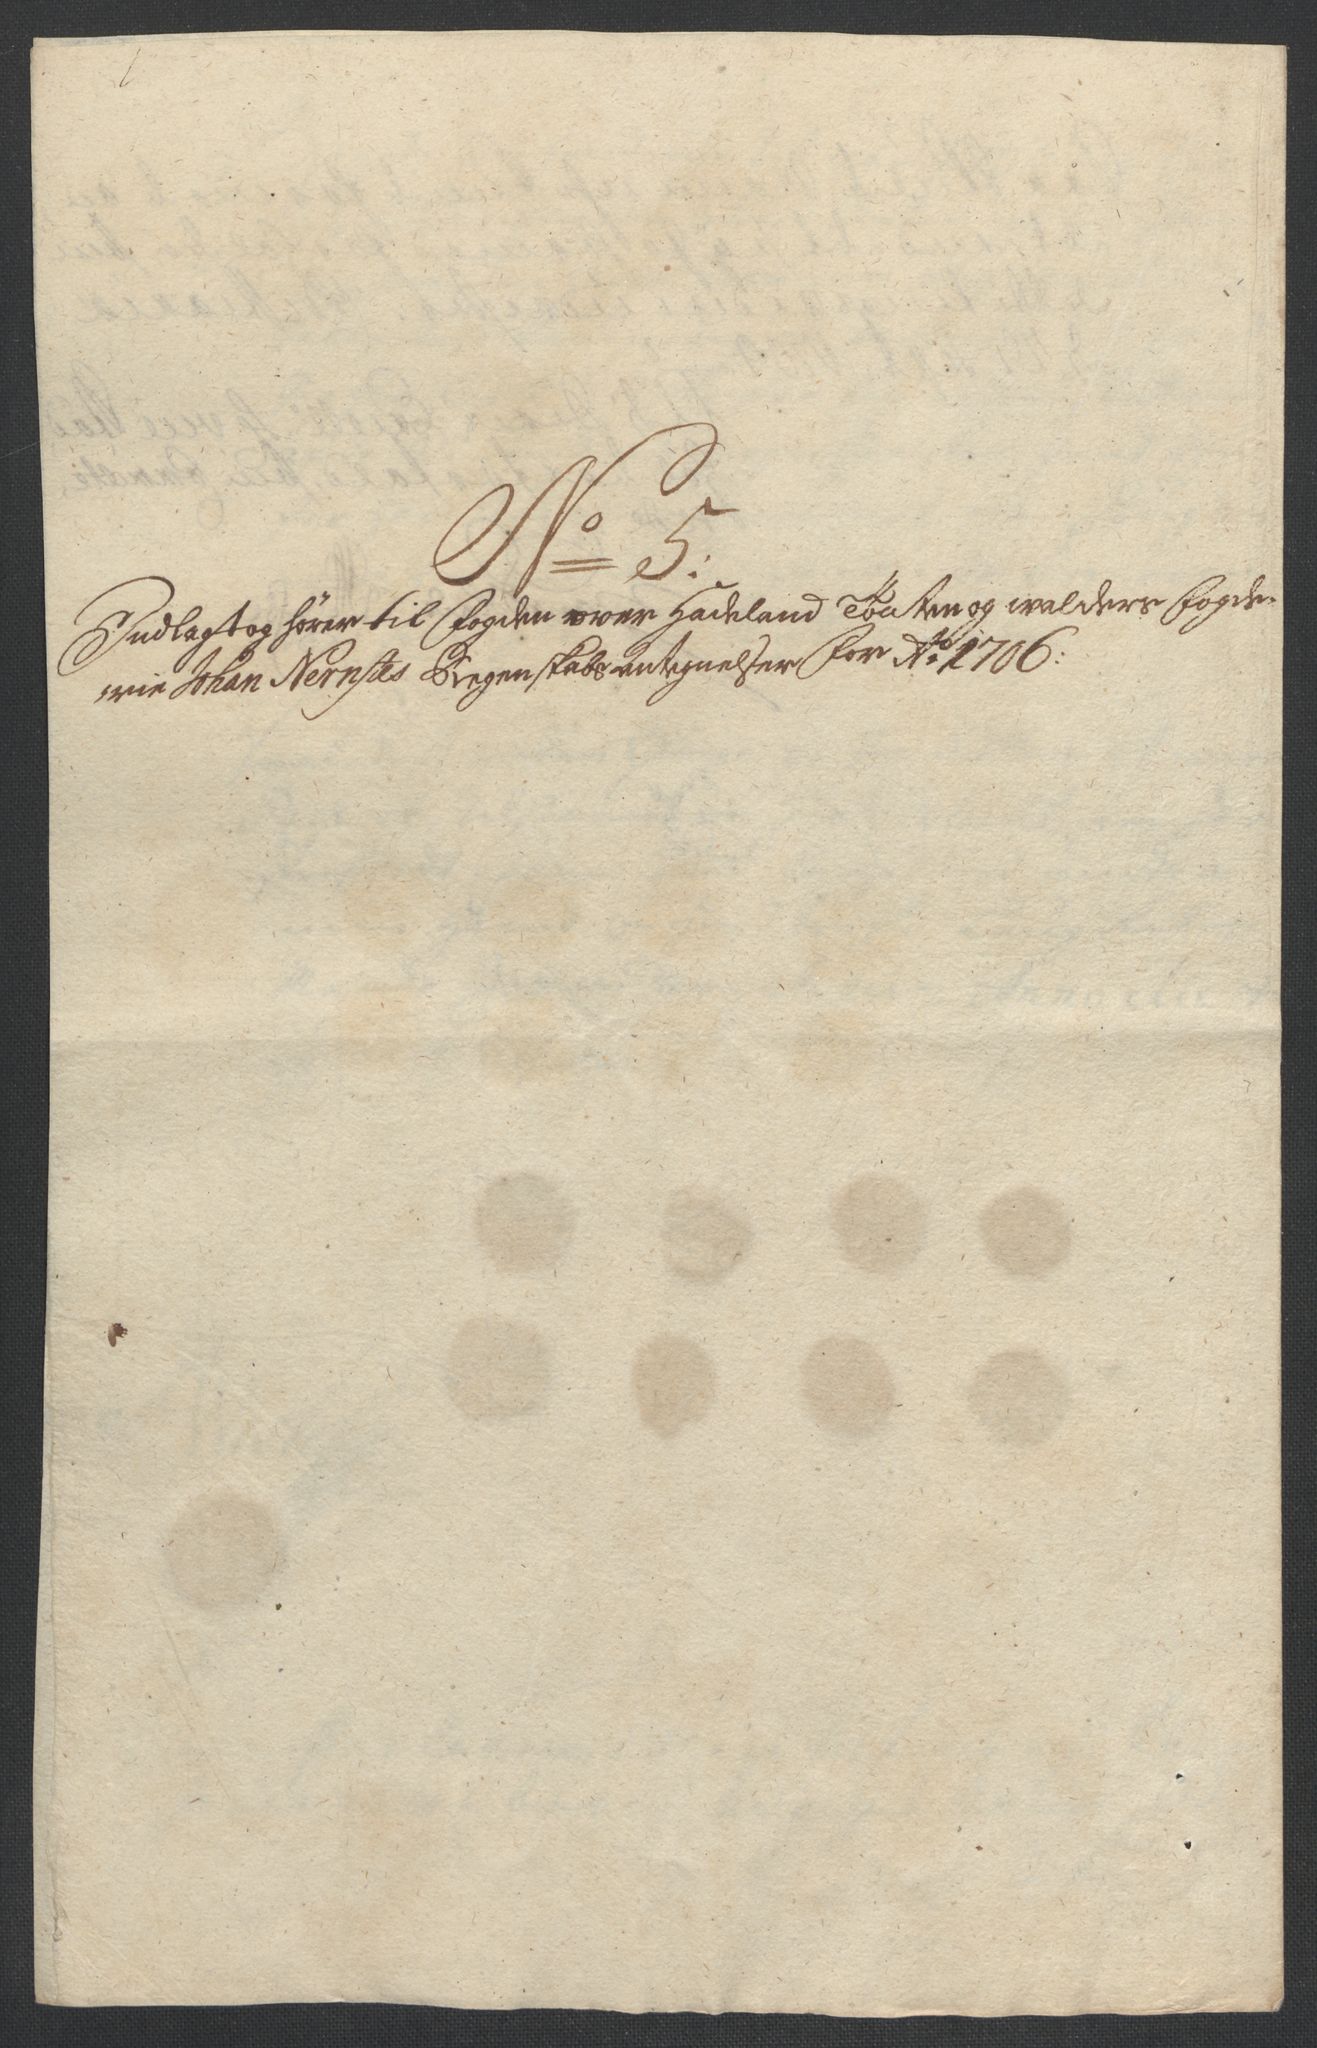 No 5:
Indlagt og hörer til Fogden over Hadeland Toten og walders Fogde-
rie Johan Nernstes Regenskabs antegnelser for Ao 1706: